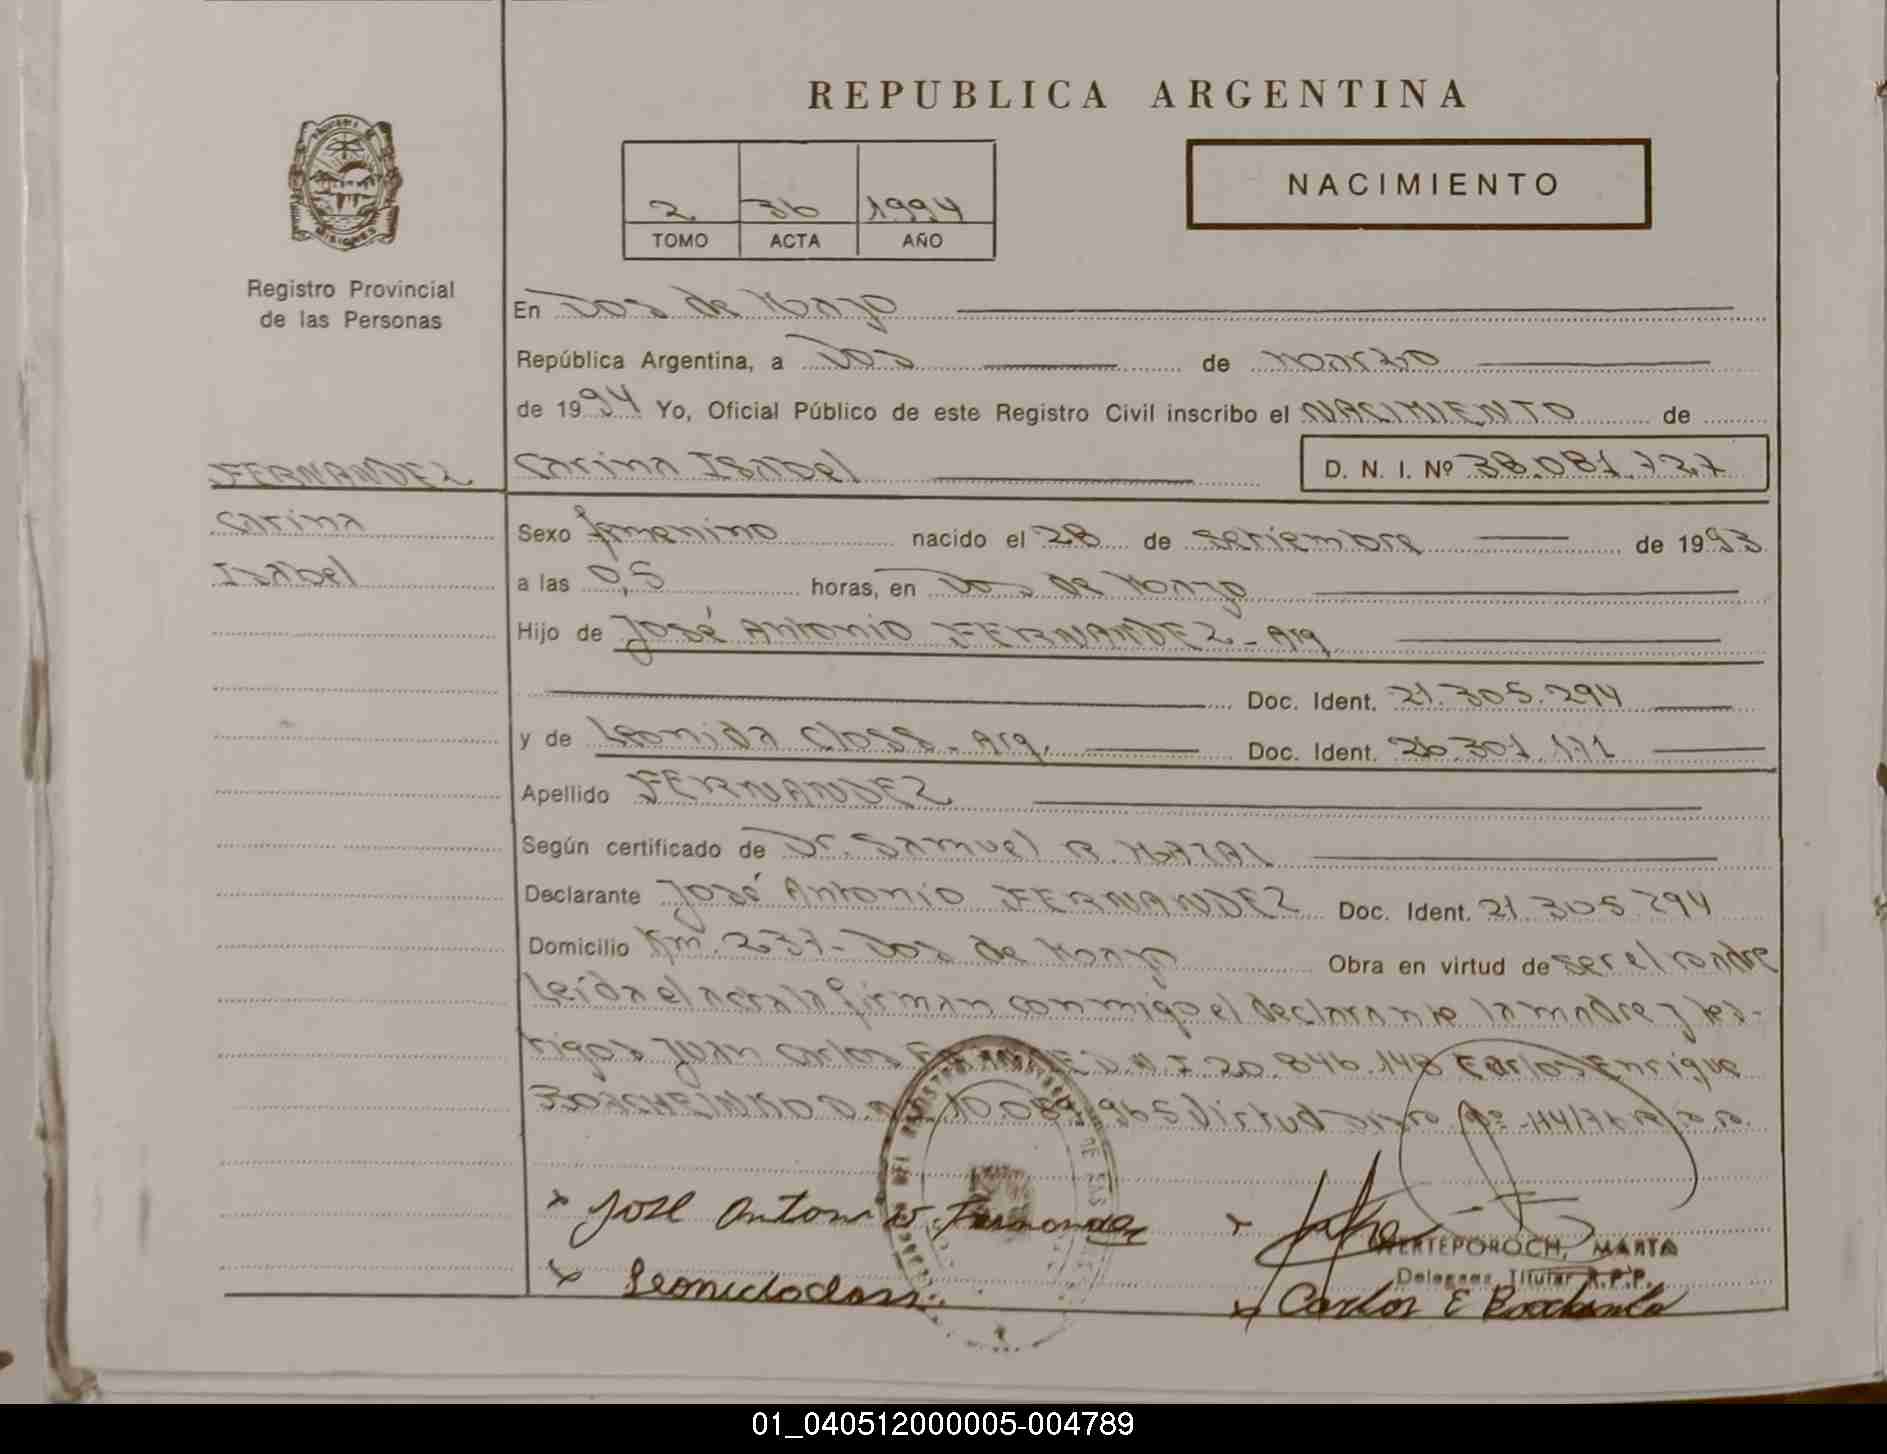 REPUBLICA ARGENTINA
NACIMIENTO
2 36 1994
TOMO ACTA AÑO
MISIONES
Registro Provincial
de las Personas
En Dos de Mayo
República Argentina, a Dos de marzo
de 1994 Yo, Oficial Público de este Registro Civil inscribo el NACIMIENTO de
FERNANDEZ Carina Isabel D. N. I. Nº 38.081.727
Carina
Isabel
Sexo femenino nacido el 28 de setiembre de 1993
a las 0,5 horas, en Dos de Mayo
Hijo de José Antonio FERNANDEZ - Arg
Doc. Ident. 21.305.294
y de Leonida Closs - Arg. Doc. Ident. 26.301.171
Apellido FERNANDEZ
Según certificado de Dr. Samuel
Declarante José Antonio FERNANDEZ Doc. Ident. 21.305.294
Domicilio Km. 237 - Dos de Mayo Obra en virtud de ser el padre
Leída el acta la firman conmigo el declarante la madre y tes-
tigos Juan Carlos D.N.I 20.846.148 Carlos Enrique
D.N. 10.089.965 Virtud
Jose Antonio Fernandez
WERTEPOROCH, MARTA
Delegada Titular R.P.P.
Leonida closs
Carlos E
01_040512000005-004789